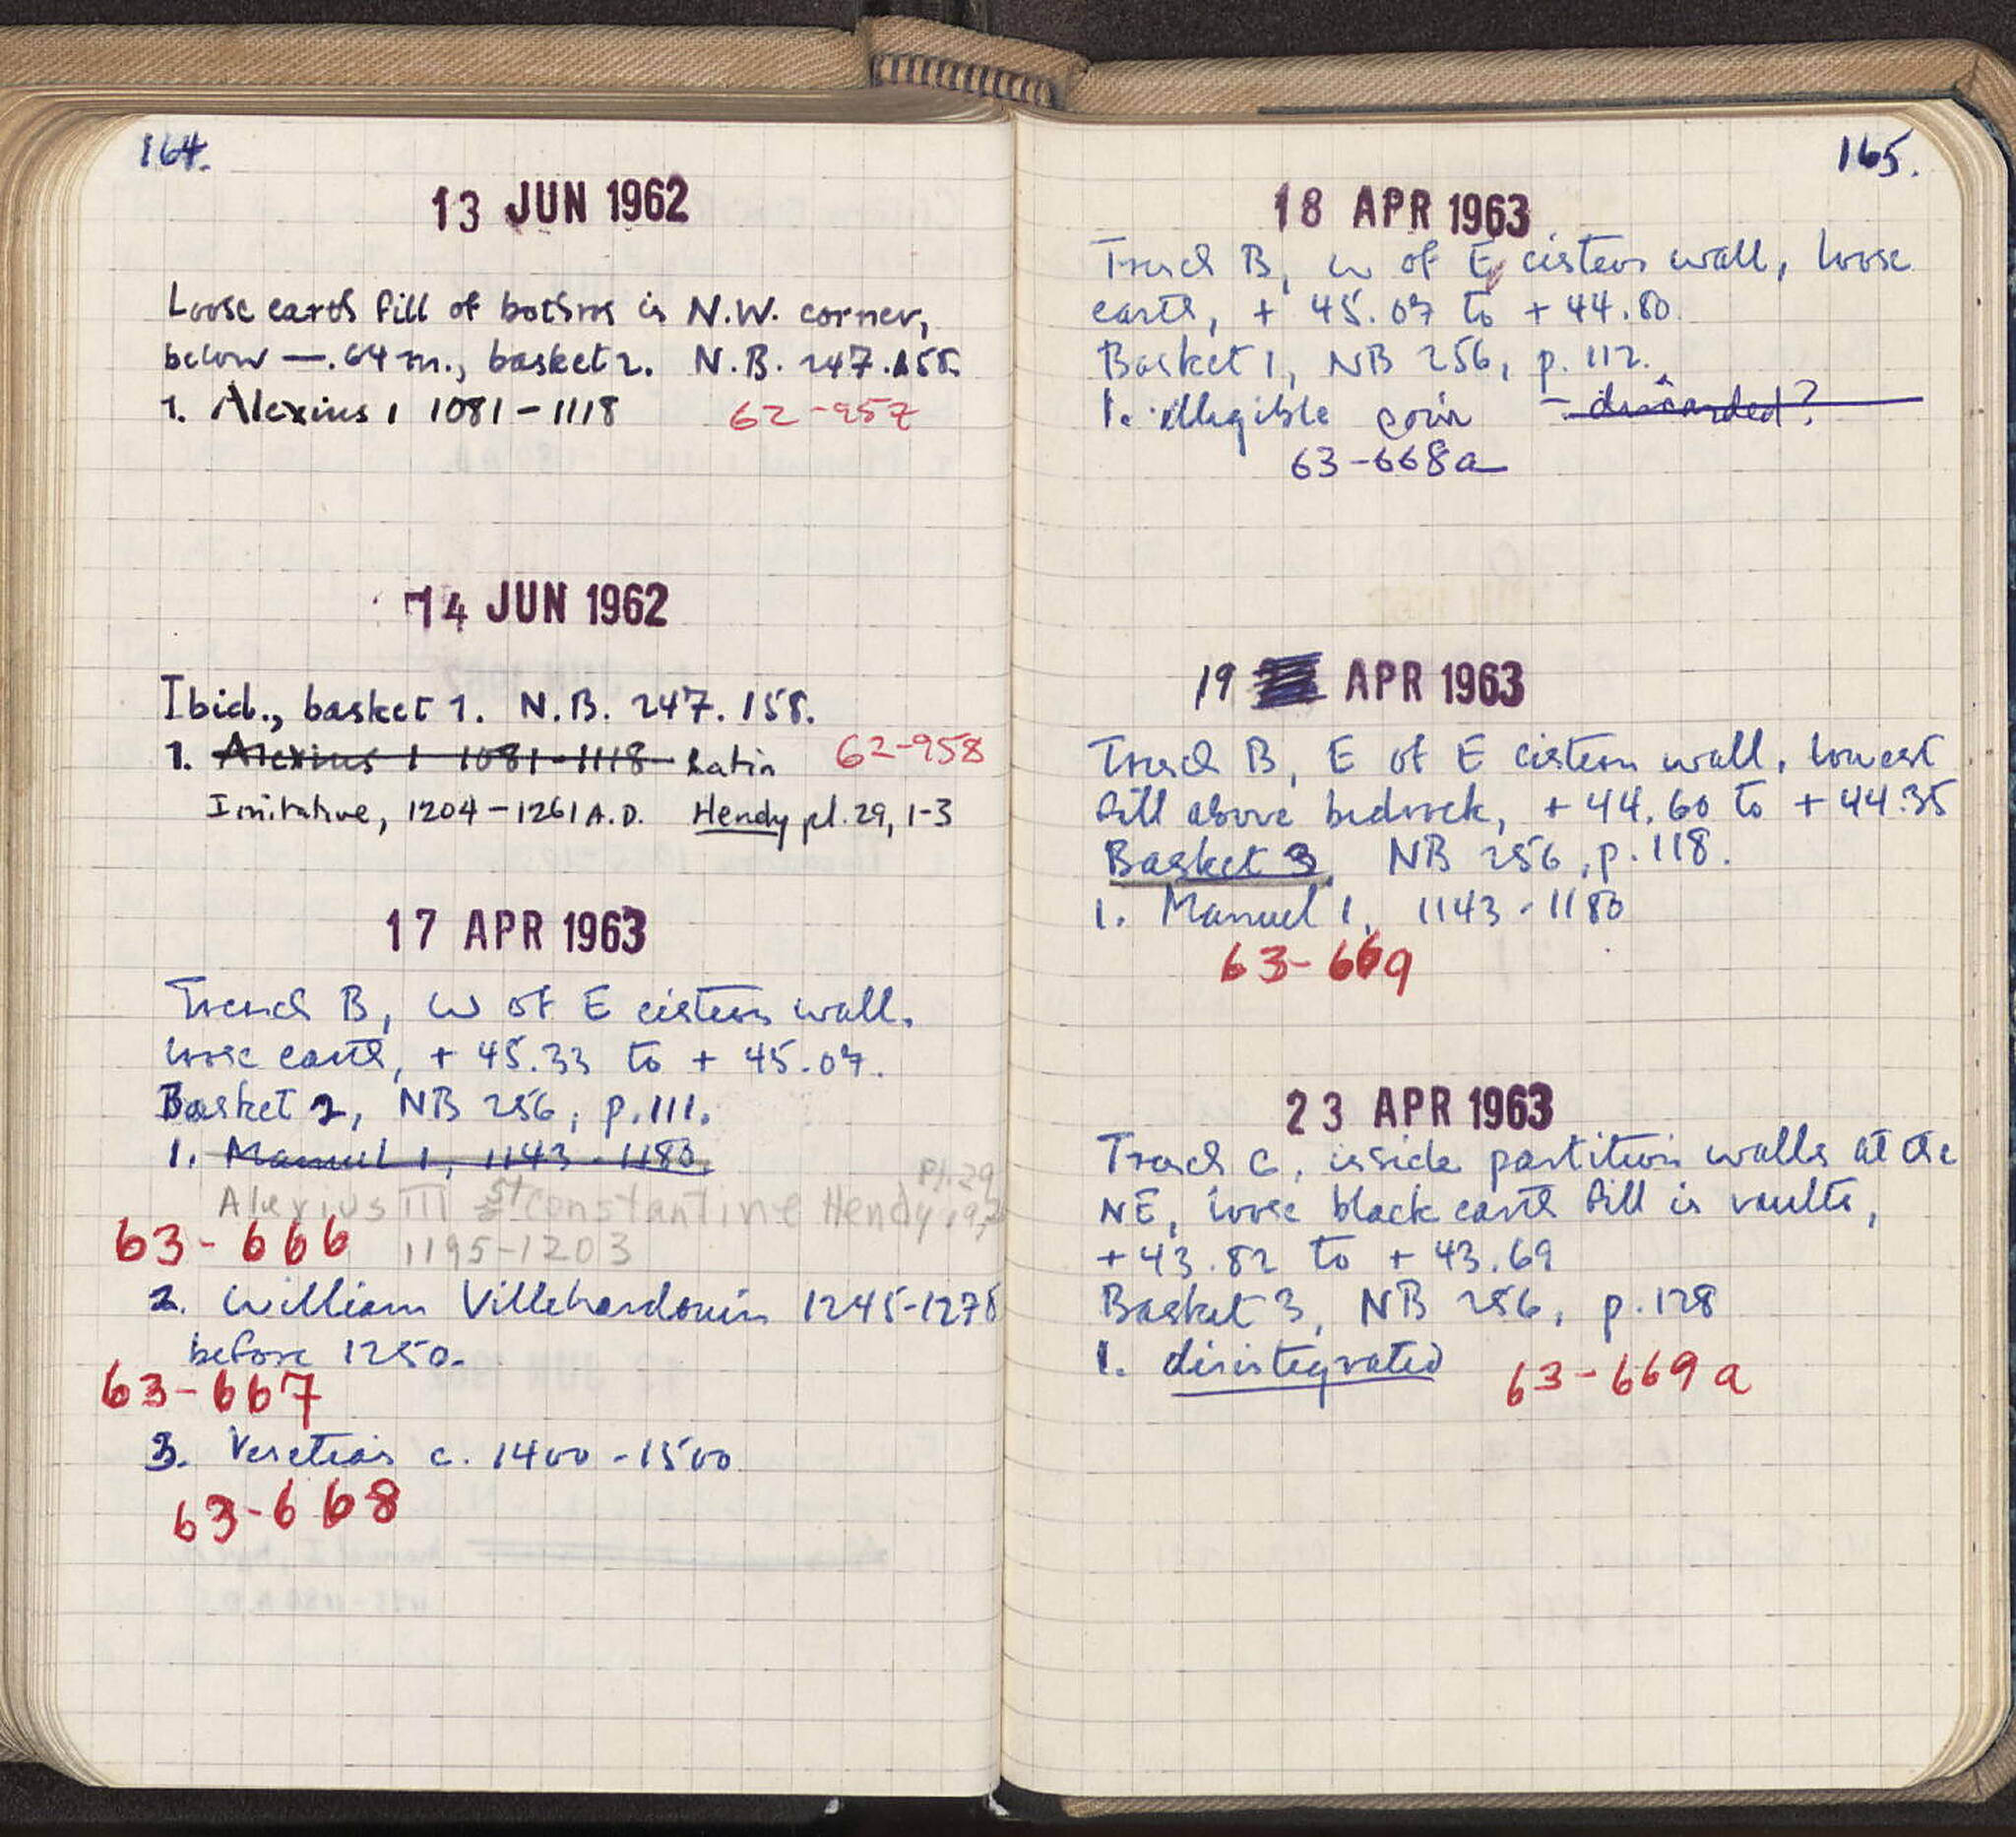 164.
13 JUN 1962
Loose earth fill of bothros in N.W. corner,
below —.64 m., basket 2. N.B. 247.158.
1. Alexius I 1081-1118 62-957
14 JUN 1962
Ibid., basket 1. N.B. 247.158.
1. Alexius I 1081-1118 Latin 62-958
Imitative, 1204-1261 A.D. Hendy pl. 29, 1-3
17 APR 1963
Trench B, W of E cistern wall,
loose earth, + 45.33 to + 45.07.
Basket 2, NB 256, p. 111.
1. Manuel I, 1143-1180.
Pl. 29
Alexius III St Constantine Hendy
63-666 1195-1203
2. William Villehardouin 1245-1278
before 1250.
63-667
3. Venetian c. 1400-1500
63-668
165.
18 APR 1963
Trench B, W of E cistern wall, loose
earth, + 45.07 to + 44.80.
Basket 1, NB 256, p. 112.
1. illegible coin - discarded?
63-668a
19 APR 1963
Trench B, E of E cistern wall, lowest
fill above bedrock, + 44.60 to + 44.35
Basket 3, NB 256, p. 118.
1. Manuel I, 1143-1180
63-669
23 APR 1963
Trench C, inside partition walls at the
NE, loose black earth fill in vaults,
+ 43.82 to + 43.69
Basket 3, NB 256, p. 128
1. disintegrated 63-669a